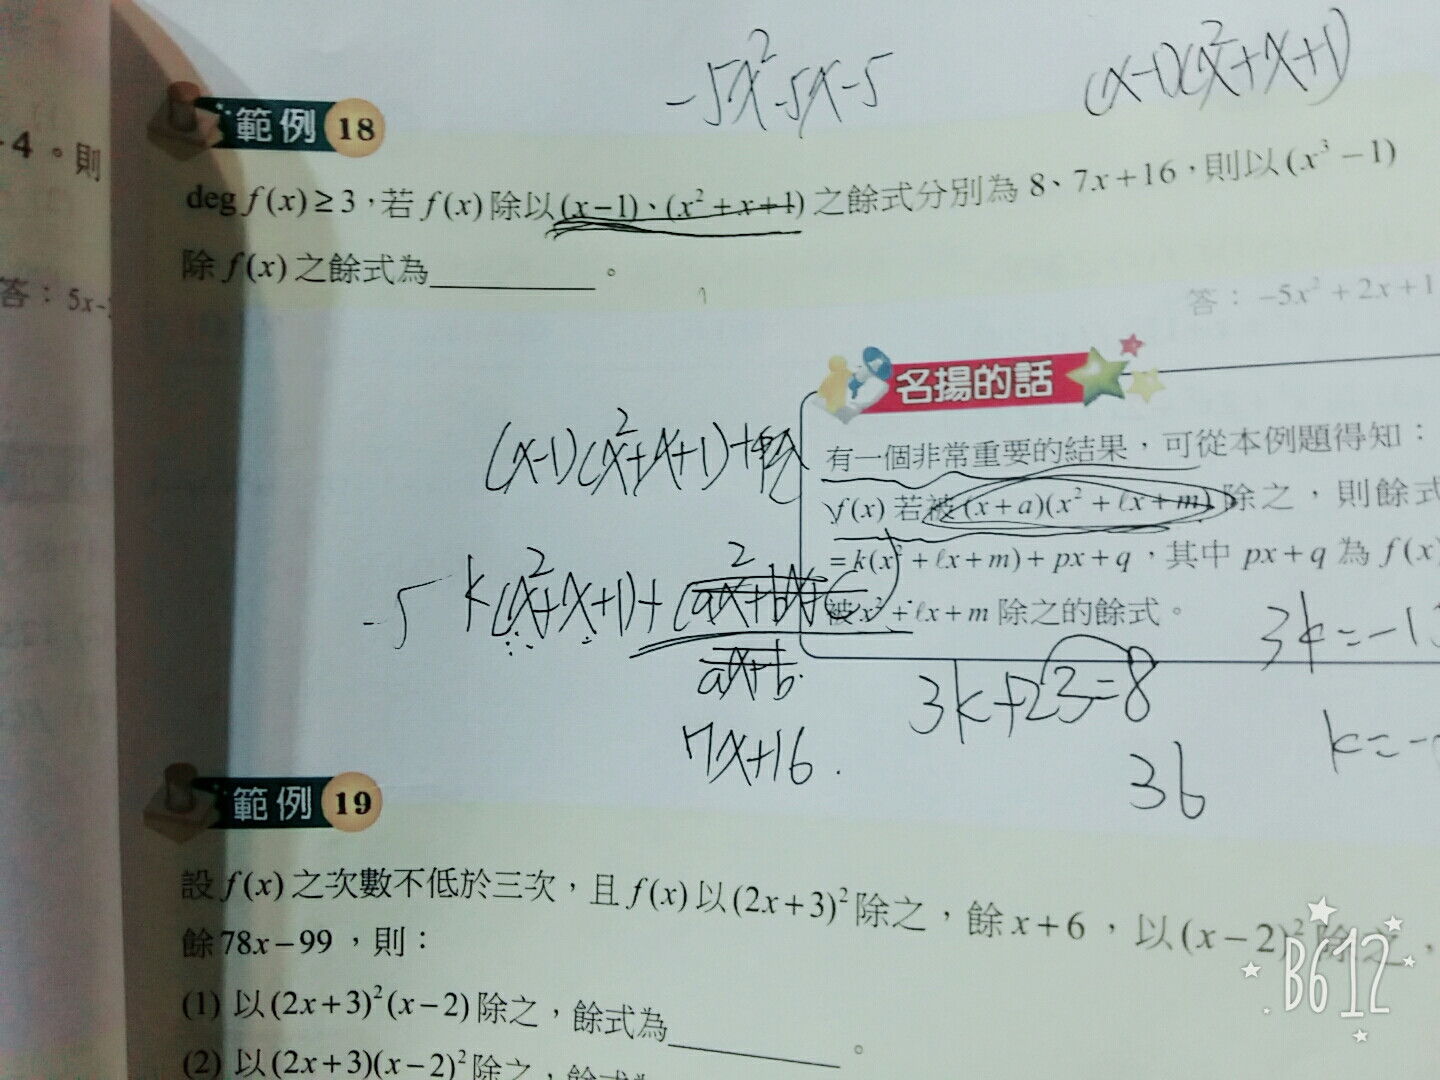 -5x²-5x-5
(x-1)(x²+x+1)
-4。則
範例 18
deg f(x)≥3,若 f(x) 除以(x-1)、(x²+x+1) 之餘式分別為 8、7x+16,則以(x³-1)
除 f(x) 之餘式為________。
答: 5x-
答: -5x²+2x+1
名揚的話
有一個非常重要的結果,可從本例題得知:
f(x) 若被(x+a)(x²+ℓx+m) 除之,則餘式
=k(x²+ℓx+m)+px+q,其中 px+q 為 f(x)
被 x²+ℓx+m 除之的餘式。
(x-1)(x²+x+1)+
-5 k(x²+x+1)+(ax²+bx+c)
ax+b
7x+16.
3k+23=8
3k=-1
k=-
36
範例 19
設 f(x) 之次數不低於三次,且 f(x) 以 (2x+3)² 除之,餘 x+6,以 (x-2)² 除之,
餘 78x-99,則:
(1) 以 (2x+3)²(x-2) 除之,餘式為________。
(2) 以 (2x+3)(x-2)² 除之,餘式為
B612